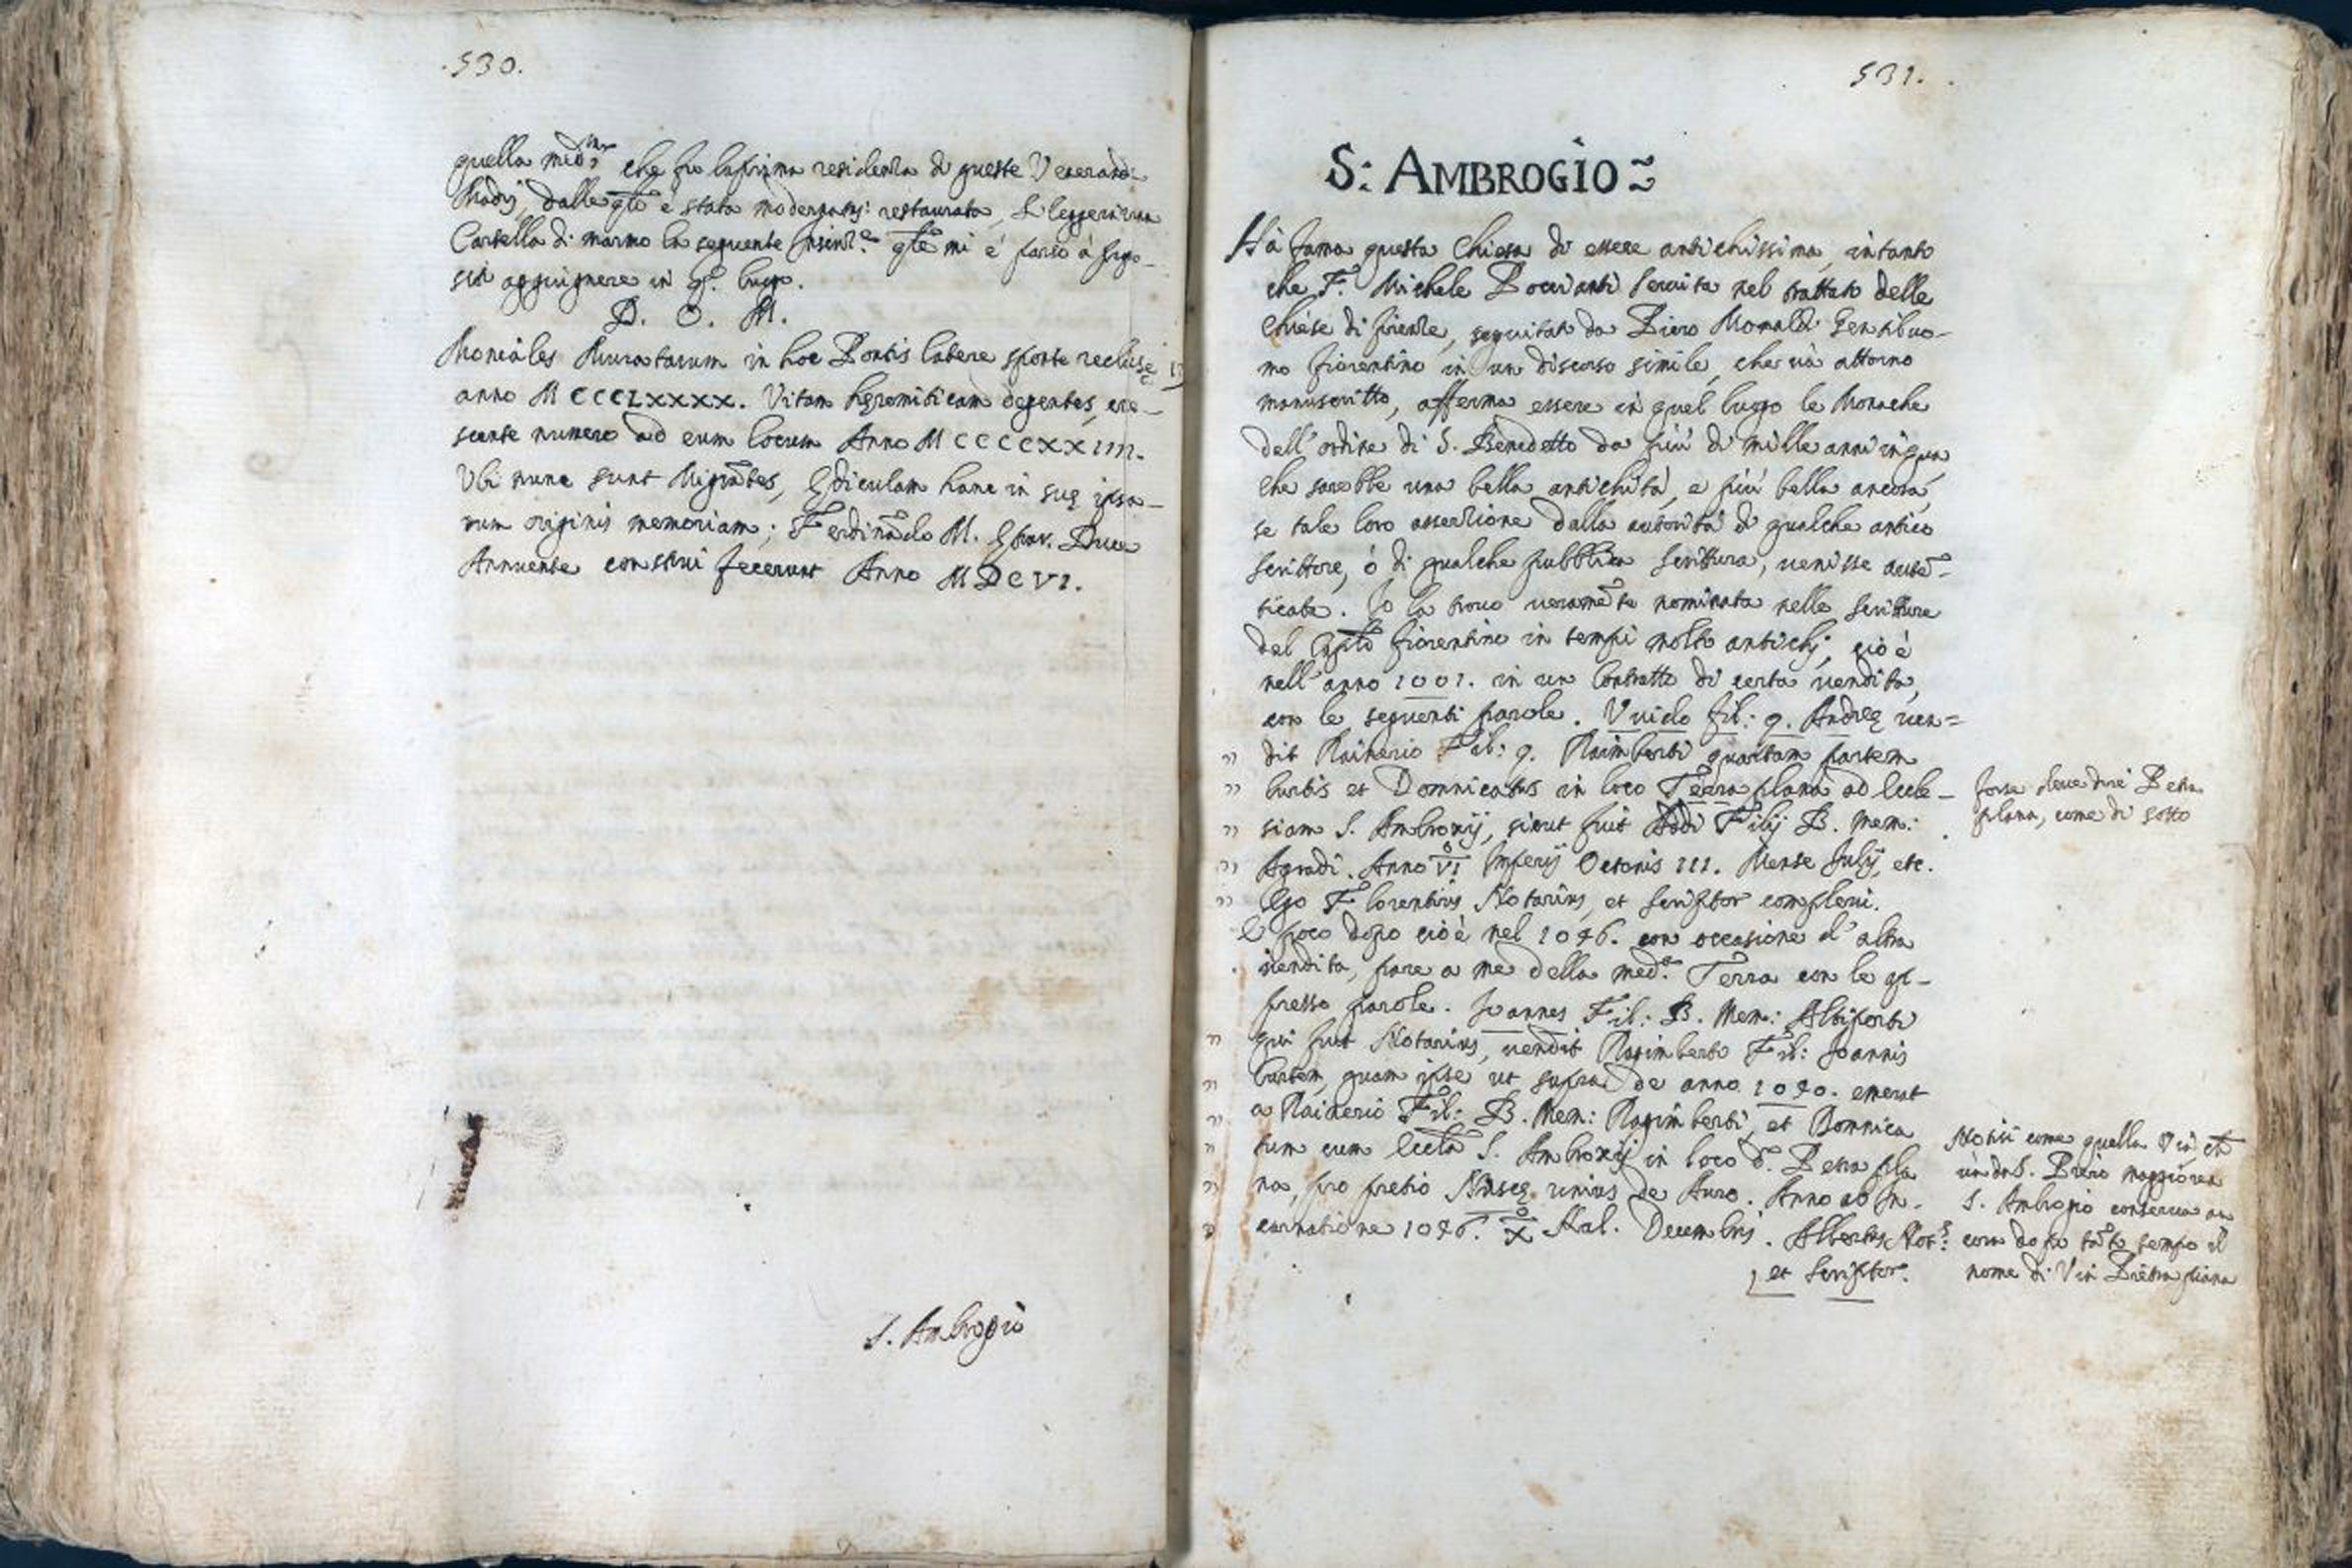 .530.
quella med.ma che fu la prima residenza di queste Venerand:
Madrj, dalle qte è stata modernamte: restaurata, si legge in una
Cartella di marmo la seguente Inscriz.e qte mi è parso à propo-
sito aggiugnere in q.o luogo.
D. O. M.
Moniales Muratarum in hoc Pontis latere sponte recluse
anno MCCCLXXXX. Vitam heremiticam degentes, cre-
scente numero ad eum locum Anno MCCCCXXIIII.
Vbi nunc sunt Migrātes, Ediculam hanc in suę ipsa-
rum originis memoriam; Ferdinādo M. Etrur. Duce
Annuente construi fecerunt Anno MDCVI.
S. Ambrogio
531.
S: AMBROGIO
Hà fama questa Chiesa di essere antichissima, intanto
che F. Michele Poccianti Servita nel trattato delle
Chiese di firenze, seguitato da Piero Monaldi Gentiluo-
mo fiorentino in un discorso simile, che và attorno
manuscritto, afferma essere in quel luogo le Monache
dell'ordine di S. Benedetto da più di mille anni in qua,
che sarebbe una bella antichità, e più bella ancora,
se tale loro asserzione dalla autorità di qualche antico
scrittore, ò di qualche pubblica scrittura, venisse autē-
ticata. Io la trovo veramēte nominata nelle scritture
del Caplo fiorentino in tempi molto antichj, cioè
nell'anno 1001. in un Contratto di certa vendita,
con le seguenti parole. Vuido fil: q. Andreę ven=
dit Rainerio Fil: q. Raimberti quartam partem
Curtis et Domnicatus in loco Terra plana ad Eccle-
siam S. Ambroxij, sicut fuit Addi Filij B. Mem:
Agradi. Anno VI Imperij Octonis III. Mense Julij, etc.
Ego Florentius Notarius, et scriptor complevi.
forse deve dire Petra
plana, come di sotto
E poco dopo cioè nel 1046. con occasione d'altra
vendita, pare a me della med.a Terra con le ap-
presso parole. Joannes Fil: B. Mem: Albiforti
qui fuit Notarius, vendit Ragimberto Fil: Joannis
Cartem, quam ipse ut supra de anno 1040. emerat
a Rainerio Fil: B. Mem: Ragimberti, et Domnica
tum cum Eccla S. Ambroxij in loco d.o Petra pla
na, pro pretio Nusce unius de Auro. Anno ab In-
carnatione 1046. X Kal. Decembris. Albertus Not:s
et scriptor.
Notisi come quella Via, che
và da S. Piero maggiore a
S. Ambrogio conserva an
cora dopo tāto tempo il
nome di Via Pietra piana